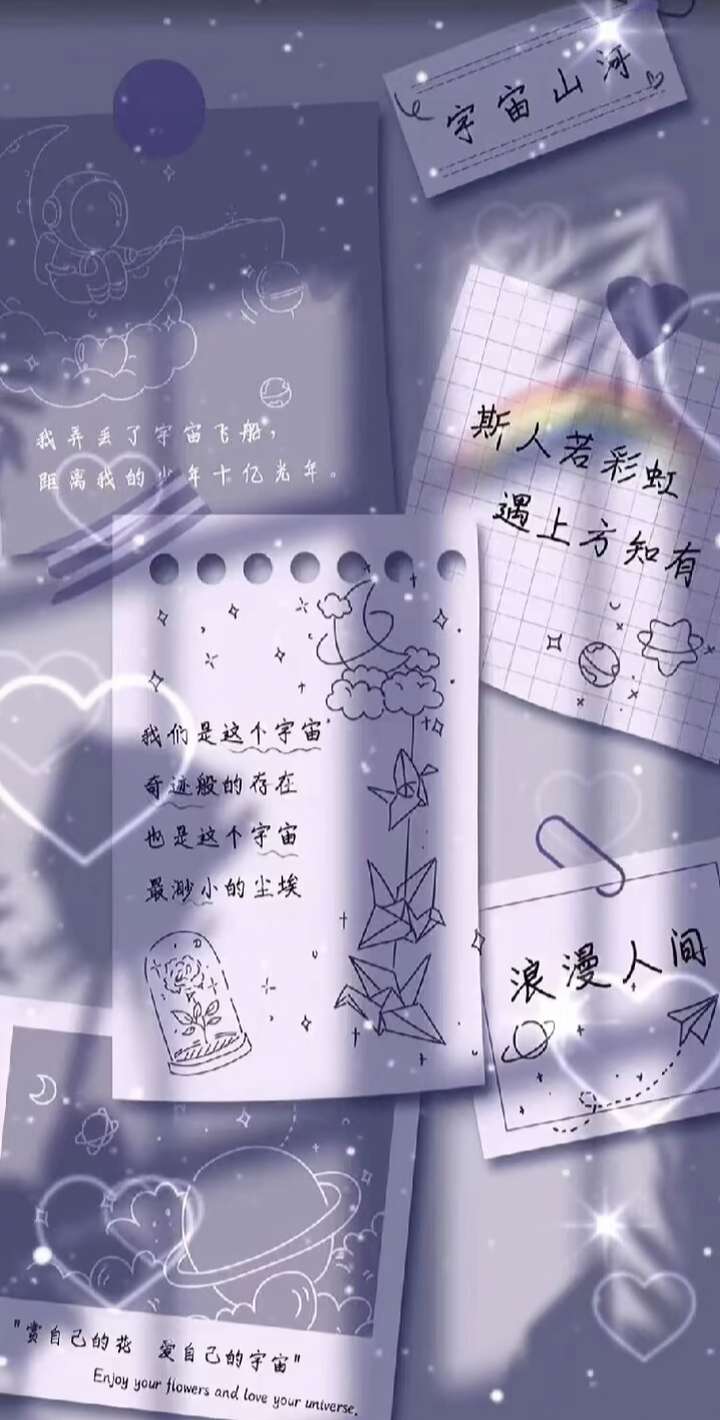 宇宙山河
我弄丢了宇宙飞船，
距离我的少年十亿光年。
斯人若彩虹
遇上方知有
我们是这个宇宙
奇迹般的存在
也是这个宇宙
最渺小的尘埃
浪漫人间
"赏自己的花 爱自己的宇宙"
Enjoy your flowers and love your universe.